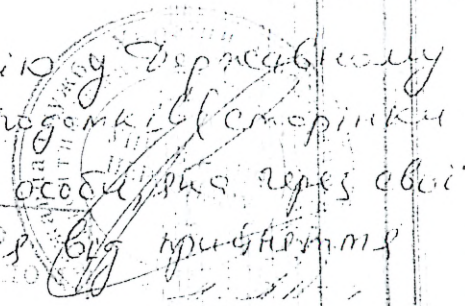 ію у Державному
(сторінки
особи, яка через свої
я від прийняття